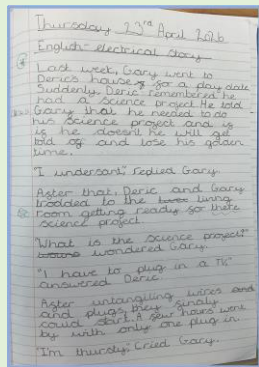 Thursday 23rd April 2026
English electrical story
Last week, Gary went to
Deric's house for a day date
Suddenly, Deric remembered he
had a science project. He told
Gary that he needed to do
his science project and is
is he doesn't he will get
told of and lose his golden
time.
"I undersant" replied Gary.
Aster that, Deric and Gary
trodded to the living
room getting ready for there
science project.
"What is the science project?"
wondered Gary.
"I have to plug in a TV"
answered Deric.
Aster untangling wires and
and plugs they finaly
could start. A sew hours went
by with only one plug in
"I'm thursty," Cried Gary.